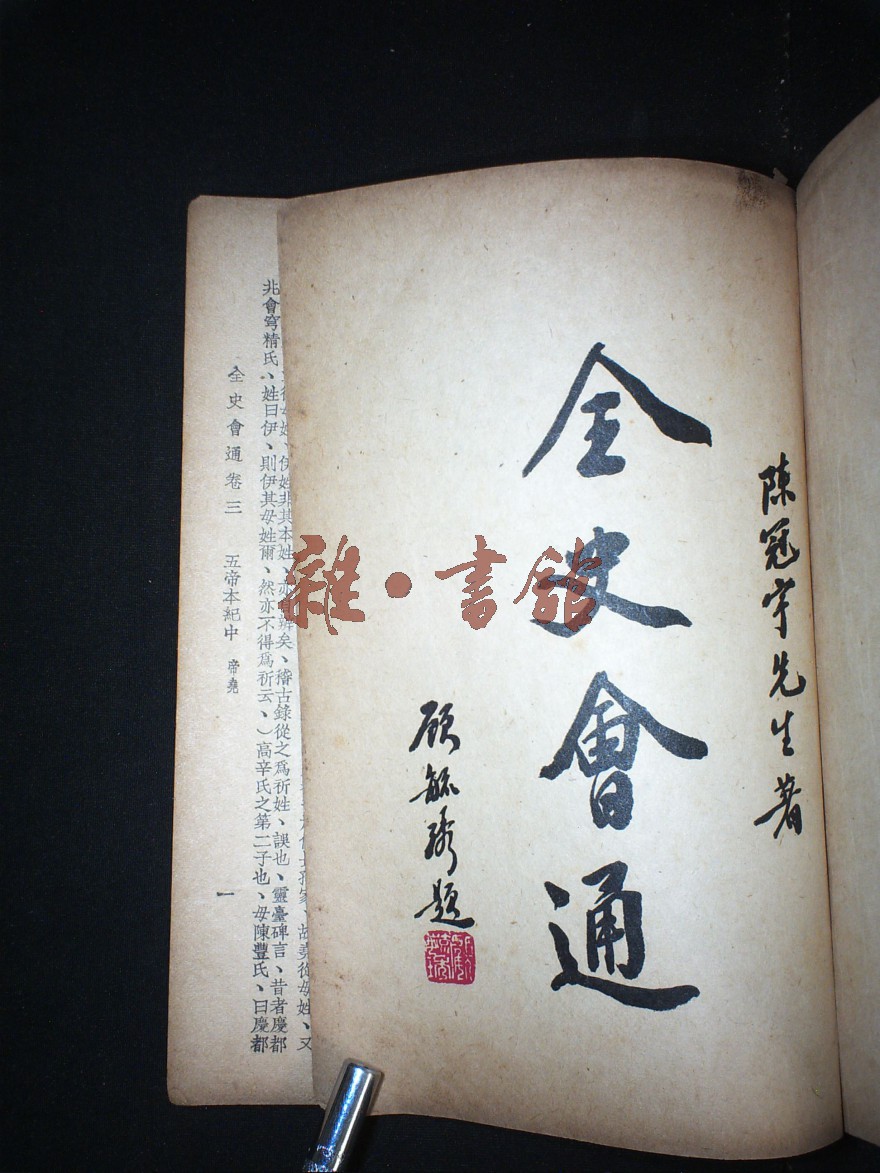 陳冠宇先生著
全史會通
顧毓琇題
雜·書館
故堯從母姓、又
伊姓非其本姓、亦可辨矣、稽古錄從之爲祈姓、誤也、靈臺碑言、昔者慶都
兆會窮精氏、姓曰伊、則伊其母姓爾、然亦不得爲祈云、)高辛氏之第二子也、母陳豐氏、曰慶都
全史會通卷三 五帝本紀中 帝堯 一